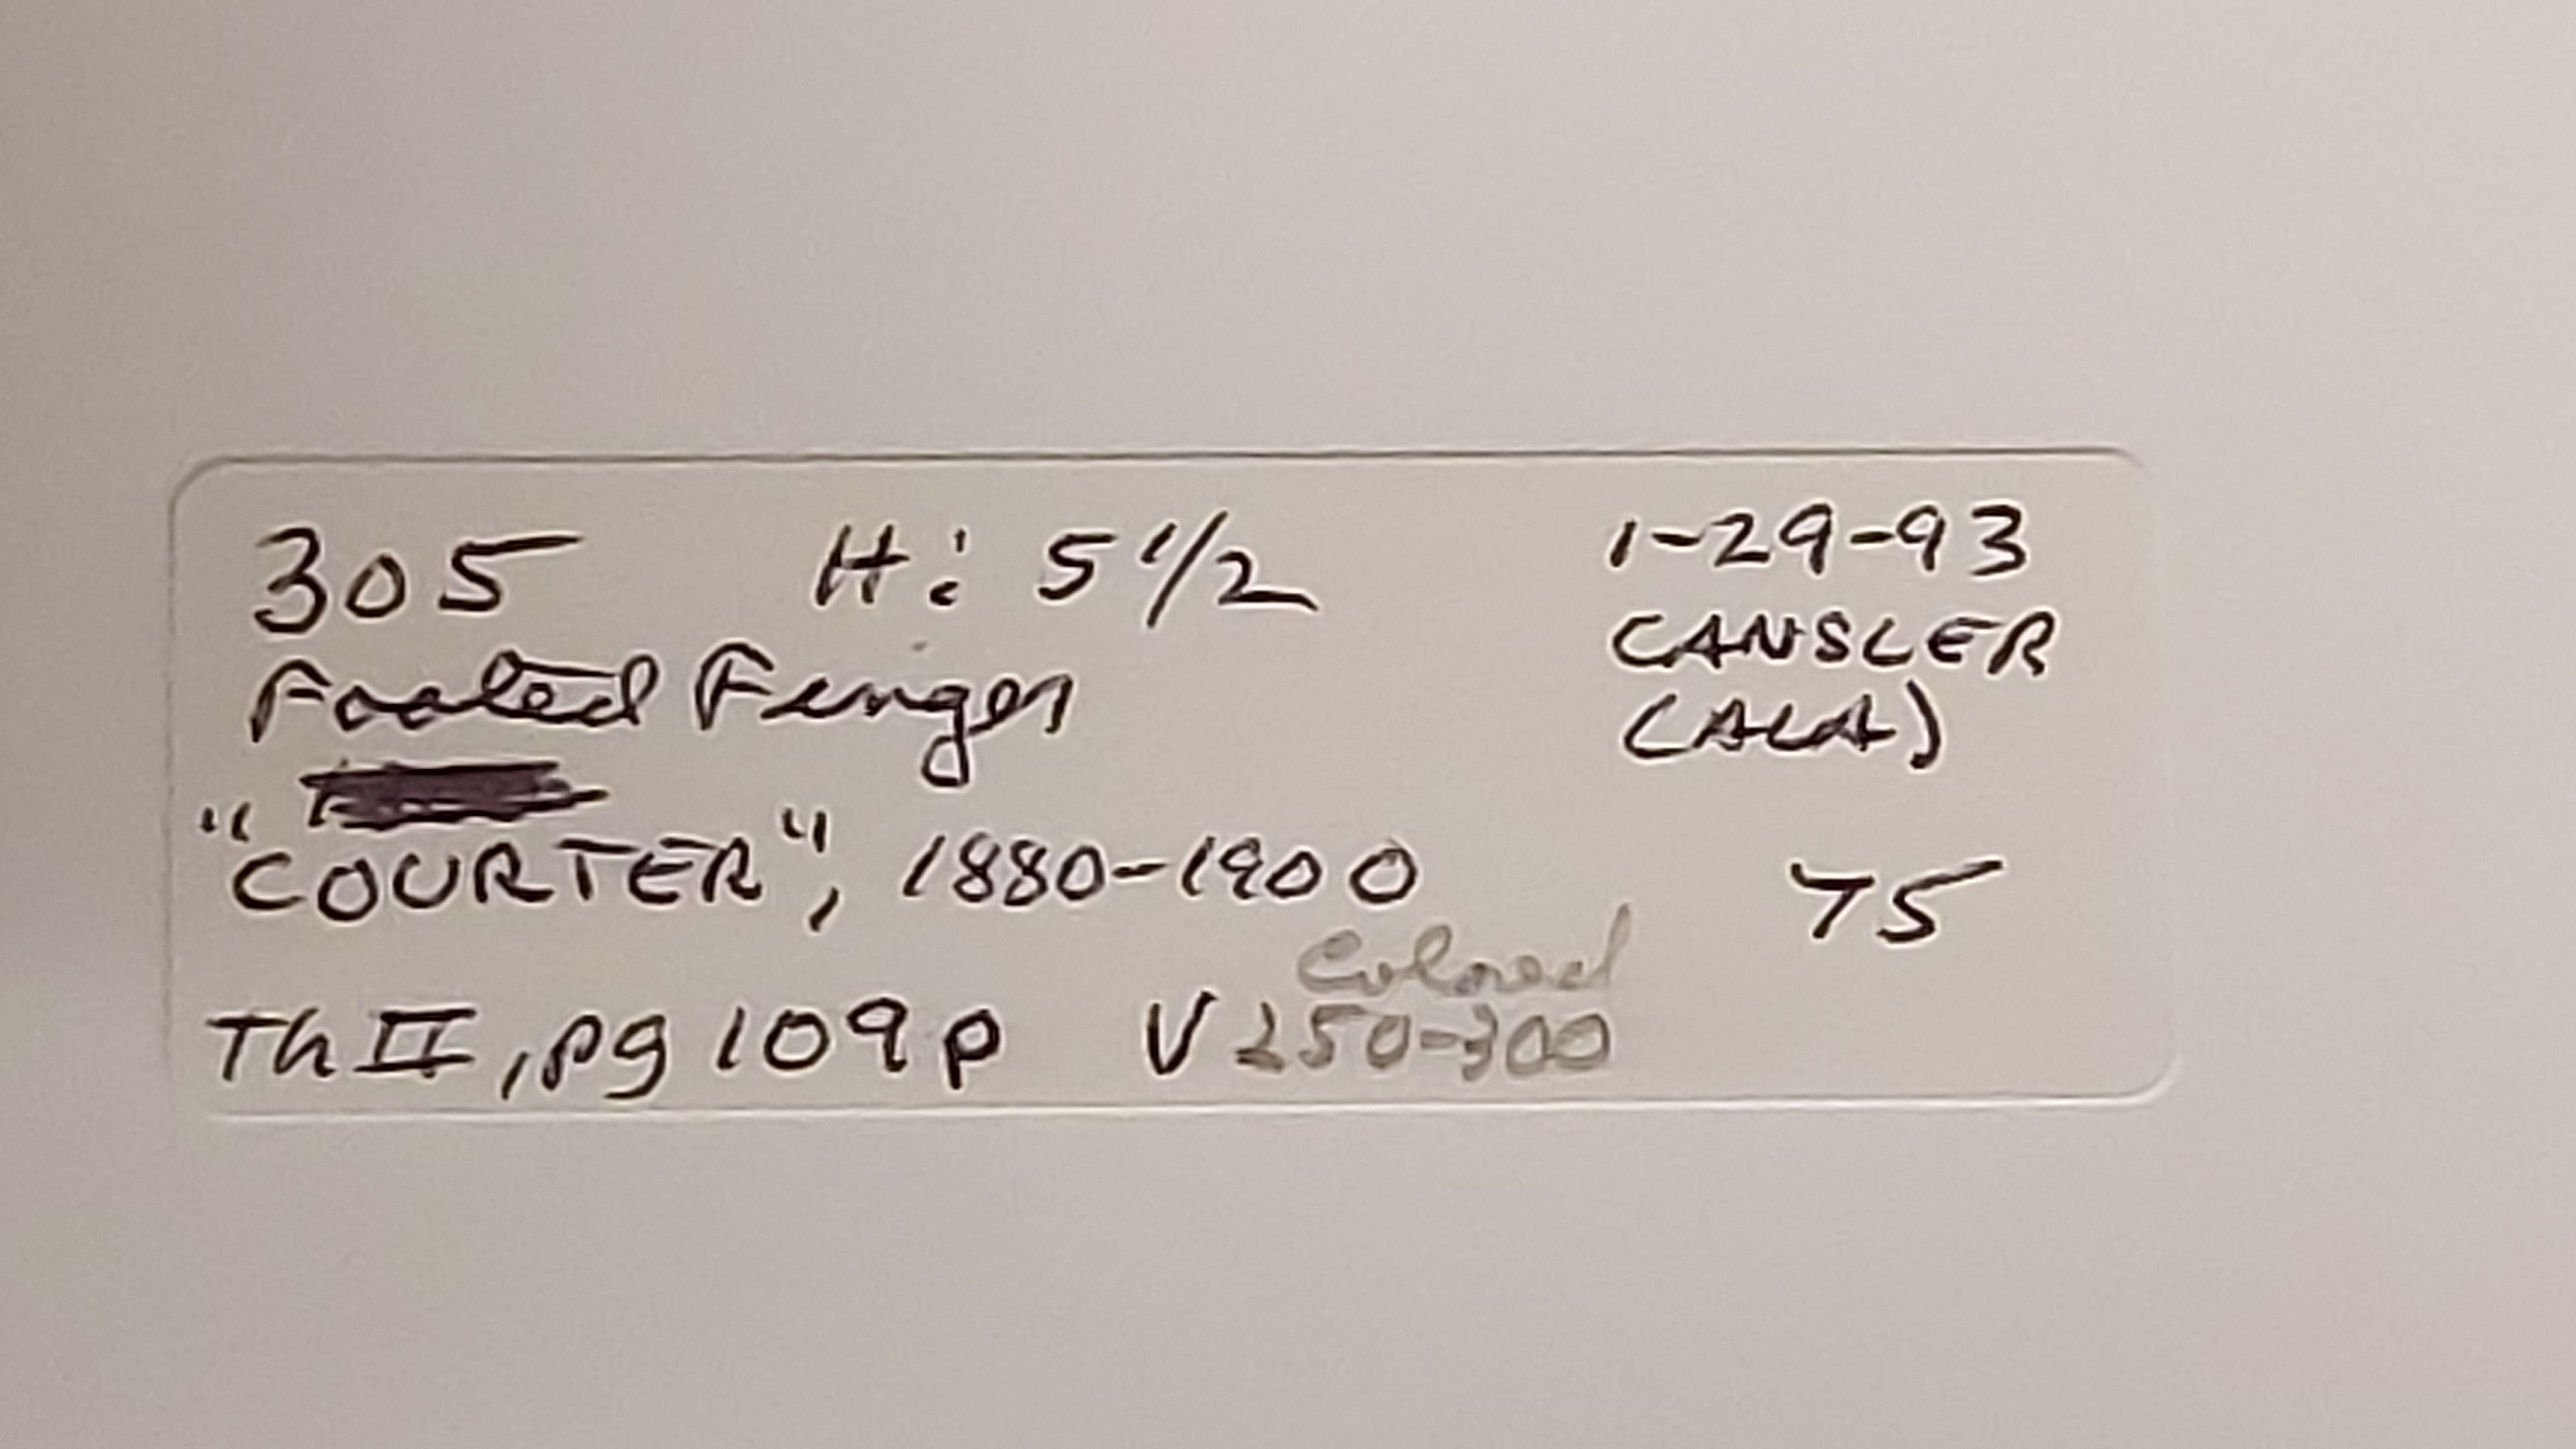 305 H: 5 1/2 1-29-93
Footed Finger CANSLER
(ALA)
"COURTER", 1880-1900 75
Colored
Th II, pg 109 p V 250-300